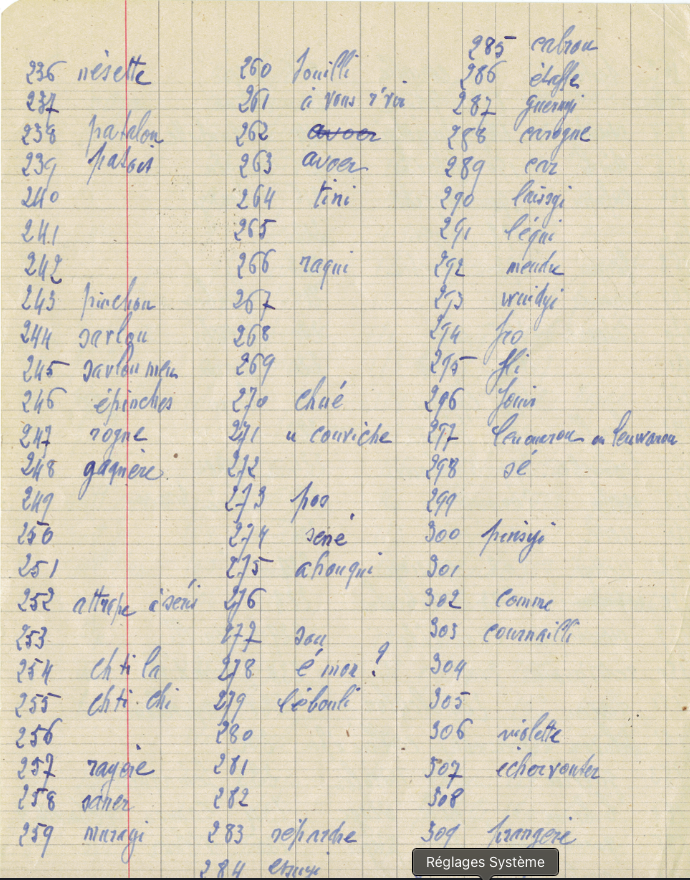 236 nésette
237
238 patalon
239 patois
240
241
242
243 pinchon
244 sarlon
245 sarlou men
246 épinches
247 rogne
248 gagnère
249
250
251
252 attrape à séris
253
254 chti la
255 chti chi
256
257 rayère
258 saner
259 muragi
260 fouilli
261 à vous r'vir
262 avoer
263 avoer
264 tini
265
266 raqui
267
268
269
270 chué
271 u couviche
272
273 pos
274 sené
275 ahouqui
276
277 sou
278 é mon ?
279 l'ébouli
280
281
282
283 réparche
284 essuyi
285 cabrou
286 étoffe
287 guernyi
288 carogne
289 car
290 laissyi
291 légui
292 mendu
293 wuidyi
294 fro
295 fli
296 fouir
297 leumeron ou leuwarou
298 sé
299
300 pinsyi
301
302 comme
303 cournailli
304
305
306 violette
307 échervonter
308
309 prangère
Réglages Système